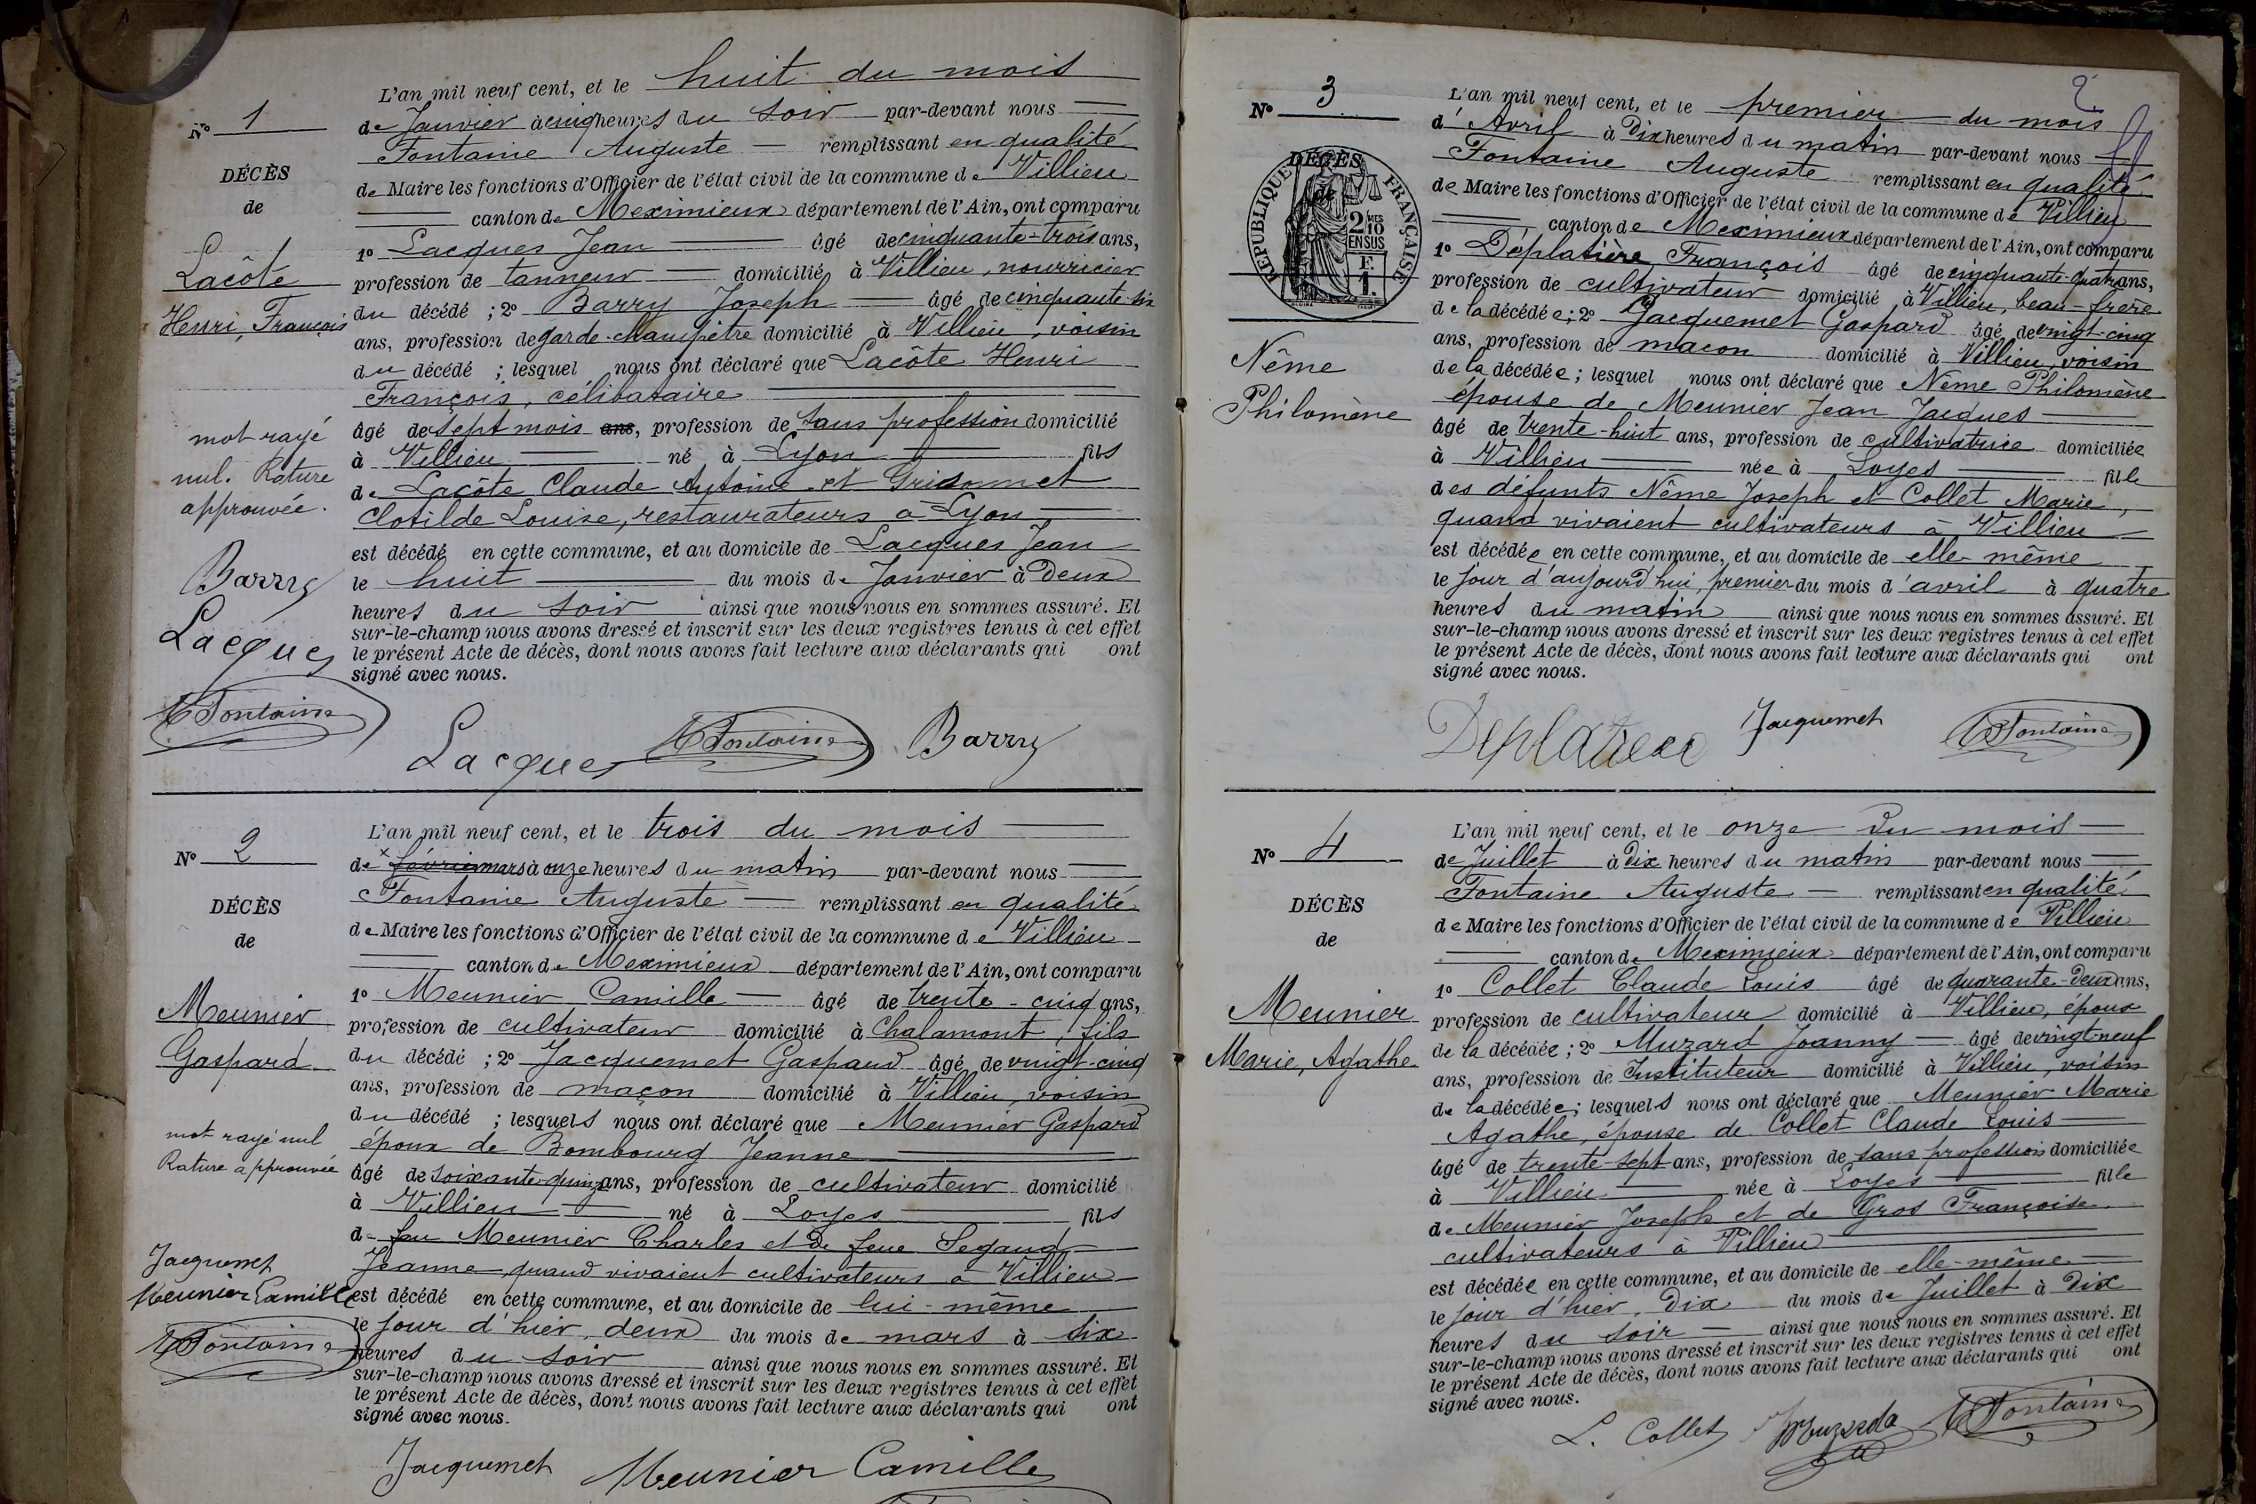 N° 1
DÉCÈS
de
Lacôte
Henri, François
mot rayé
nul. Rature
approuvée.
Barry
Lacques
A Fontaine
L'an mil neuf cent, et le huit du mois
de Janvier à cinq heures du soir par-devant nous
Fontaine Auguste remplissant en qualité
de Maire les fonctions d'Officier de l'état civil de la commune de Villieu
canton de Meximieux département de l'Ain, ont comparu
1° Lacques Jean âgé de cinquante-trois ans,
profession de tanneur domicilié à Villieu, nourricier
du décédé ; 2° Barry Joseph âgé de cinquante-six
ans, profession de garde-champêtre domicilié à Villieu, voisin
du décédé ; lesquel nous ont déclaré que Lacôte Henri
François, célibataire
âgé de sept mois ans, profession de sans profession domicilié
à Villieu né à Lyon fils
de Lacôte Claude Antoine et Gridonnet
Clotilde Louise, restaurateurs à Lyon
est décédé en cette commune, et au domicile de Lacques Jean
le huit du mois de Janvier à Deux
heures du soir ainsi que nous nous en sommes assuré. Et
sur-le-champ nous avons dressé et inscrit sur les deux registres tenus à cet effet
le présent Acte de décès, dont nous avons fait lecture aux déclarants qui ont
signé avec nous.
Lacques A Fontaine Barry
N° 2
DÉCÈS
de
Meunier
Gaspard
mot rayé nul
Rature approuvée
Jacquemet
Meunier Camille
A Fontaine
L'an mil neuf cent, et le trois du mois
de février mars à onze heures du matin par-devant nous
Fontaine Auguste remplissant en qualité
de Maire les fonctions d'Officier de l'état civil de la commune de Villieu
canton de Meximieux département de l'Ain, ont comparu
1° Meunier Camille âgé de trente-cinq ans,
profession de cultivateur domicilié à Chalamont, fils
du décédé ; 2° Jacquemet Gaspard âgé de vingt-cinq
ans, profession de maçon domicilié à Villieu, voisin
du décédé ; lesquels nous ont déclaré que Meunier Gaspard
époux de Bombourg Jeanne
âgé de soixante-quinze ans, profession de cultivateur domicilié
à Villieu né à Loyes fils
de feu Meunier Charles et de feue Segaud
Jeanne, quand vivaient cultivateurs à Villieu
est décédé en cette commune, et au domicile de lui-même
le jour d'hier, deux du mois de mars à six
heures du soir ainsi que nous nous en sommes assuré. Et
sur-le-champ nous avons dressé et inscrit sur les deux registres tenus à cet effet
le présent Acte de décès, dont nous avons fait lecture aux déclarants qui ont
signé avec nous.
Jacquemet Meunier Camille
2
N° 3
DÉCÈS
de
RÉPUBLIQUE FRANÇAISE
2/10 MES
EN SUS
F.
1.
Nême
Philomène
L'an mil neuf cent, et le premier du mois
d'Avril à Dix heures du matin par-devant nous
Fontaine Auguste remplissant en qualité
de Maire les fonctions d'Officier de l'état civil de la commune de Villieu
canton de Meximieux département de l'Ain, ont comparu
1° Déplatière François âgé de cinquante-quatre ans,
profession de cultivateur domicilié à Villieu, beau-frère
de la décédée ; 2° Jacquemet Gaspard âgé de vingt-cinq
ans, profession de maçon domicilié à Villieu, voisin
de la décédée ; lesquel nous ont déclaré que Nême Philomène
épouse de Meunier Jean Jacques
âgé de trente-huit ans, profession de cultivatrice domiciliée
à Villieu née à Loyes fille
des défunts Nême Joseph et Collet Marie,
quand vivaient cultivateurs à Villieu
est décédée en cette commune, et au domicile de elle-même
le jour d'aujourd'hui, premier du mois d'avril à quatre
heures du matin ainsi que nous nous en sommes assuré. Et
sur-le-champ nous avons dressé et inscrit sur les deux registres tenus à cet effet
le présent Acte de décès, dont nous avons fait lecture aux déclarants qui ont
signé avec nous.
Jacquemet A Fontaine
N° 4
DÉCÈS
de
Meunier
Marie, Agathe
L'an mil neuf cent, et le onze du mois
de Juillet à Dix heures du matin par-devant nous
Fontaine Auguste remplissant en qualité
de Maire les fonctions d'Officier de l'état civil de la commune de Villieu
canton de Meximieux département de l'Ain, ont comparu
1° Collet Claude Louis âgé de quarante-deux ans,
profession de cultivateur domicilié à Villieu, époux
de la décédée ; 2° Muzard Joanny âgé de vingt-neuf
ans, profession de Instituteur domicilié à Villieu, voisin
de la décédée ; lesquels nous ont déclaré que Meunier Marie
Agathe, épouse de Collet Claude Louis
âgé de trente-sept ans, profession de sans profession domiciliée
à Villieu née à Loyes fille
de Meunier Joseph et de Gros Françoise
cultivateurs à Villieu
est décédée en cette commune, et au domicile de elle-même
le jour d'hier, Dix du mois de Juillet à Dix
heures du soir ainsi que nous nous en sommes assuré. Et
sur-le-champ nous avons dressé et inscrit sur les deux registres tenus à cet effet
le présent Acte de décès, dont nous avons fait lecture aux déclarants qui ont
signé avec nous.
L. Collet A Fontaine